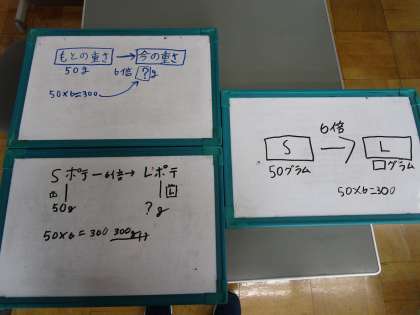 もとの重さ → 今の重さ
50g 6倍 ? g
50×6=300
Sポテ-6倍→Lポテ
50g ? g
50×6=300 300g
6倍
S → L
50グラム □グラム
50×6=300